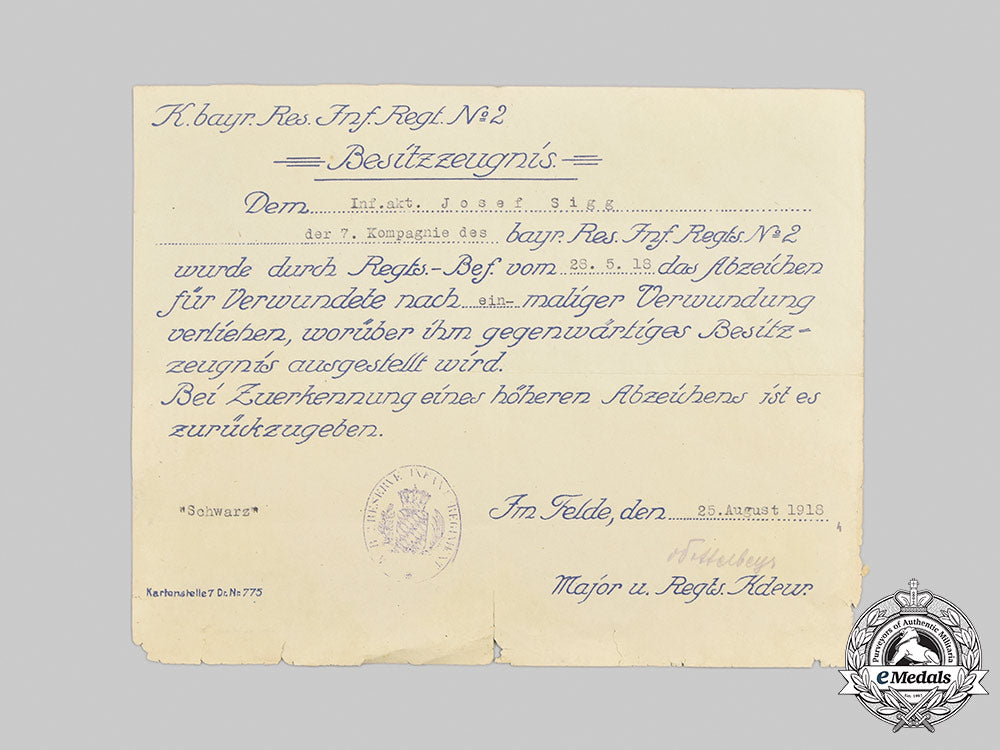 K. bayr. Res. Inf. Regt. No 2
Besitzzeugnis.
Dem Inf.akt. Josef Sigg
der 7. Kompagnie des bayr. Res. Inf. Regts. No 2
wurde durch Regts.-Bef. vom 28. 5. 18 das Abzeichen
für Verwundete nach ein- maliger Verwundung
verliehen, worüber ihm gegenwärtiges Besitz-
zeugnis ausgestellt wird.
Bei Zuerkennung eines höheren Abzeichens ist es
zurückzugeben.
"Schwarz"
RESERVE INFANT REGIMENT
Im Felde, den 25. August 1918
Major u. Regts. Kdeur.
Kartenstelle 7 Dr. Nr. 775
Purveyors of Authentic Militaria
eMedals